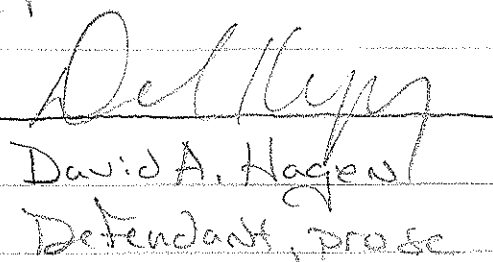 David A. Hagen
Defendant, pro se